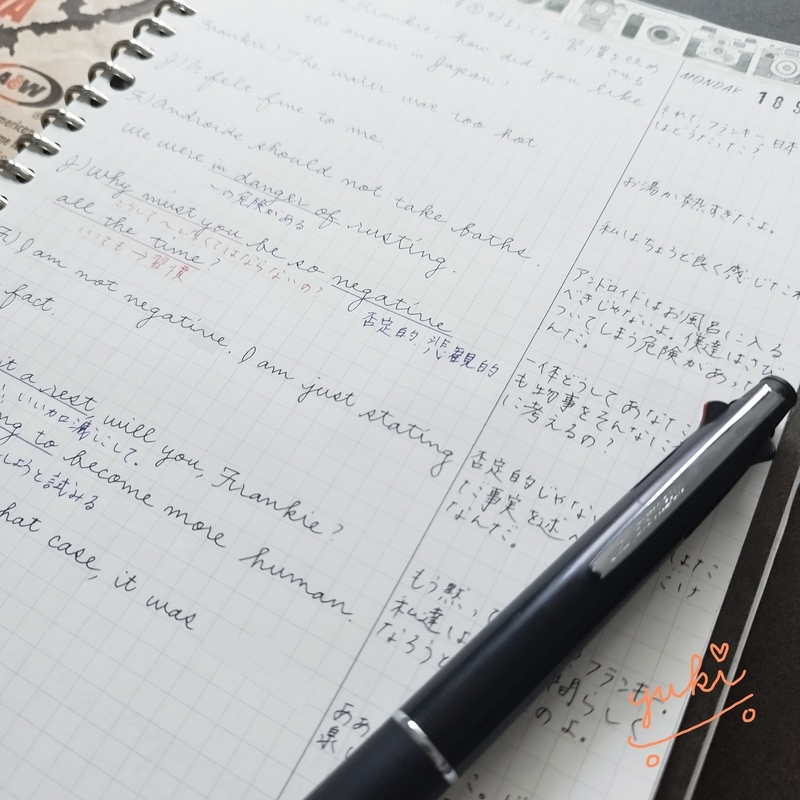 A&W
Frankie, how did you like
the onsen in Japan?
Frankie) The water was too hot.
J) It felt fine to me.
F) Androids should not take baths.
We were in danger of rusting.
〜の危険がある
J) Why must you be so negative
どうして〜しなくてはならないの?
否定的, 悲観的
all the time?
いつも → 習慣
F) I am not negative. I am just stating
fact.
a rest, will you, Frankie?
いい加減にして。
to become more human.
しようと試みる
that case, it was
MONDAY
189
それで、フランキー、日本
はどうだった?
お湯が熱すぎたよ。
私はちょうど良く感じた
アンドロイドはお風呂に入る
べきじゃないよ。僕達はさび
ついてしまう危険があった
んだ。
一体どうしてあなた
も物事をそんなに
に考えるの?
否定的じゃない
だ事実を述べ
なんだ。
もう黙って
フランキー。
私達は
なろうと
のよ。
ああ
楽し
yuki